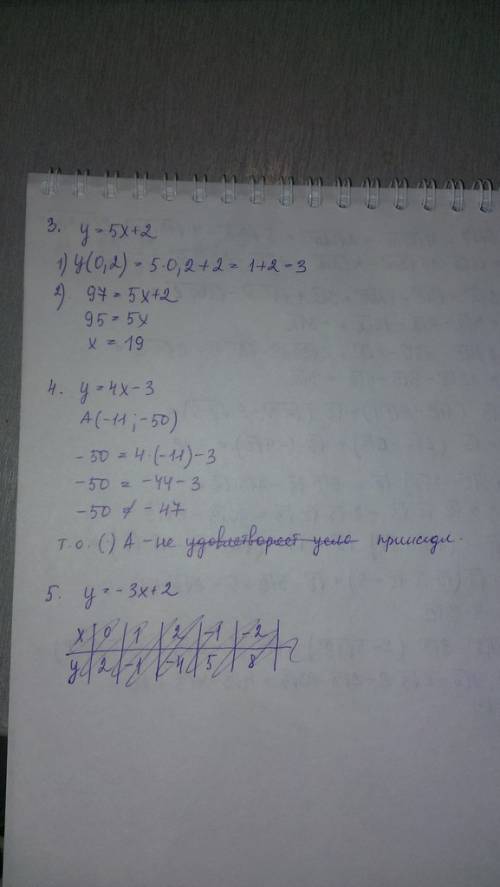 3. y = 5x+2
1) y(0,2) = 5·0,2+2 = 1+2=3
2) 97 = 5x+2
95 = 5x
x = 19
4. y = 4x-3
A(-11; -50)
-50 = 4·(-11)-3
-50 = -44-3
-50 ≠ -47
т.о. (·) A - не удовлетворяет усло принадл.
5. y = -3x+2
x | 0 | 1 | 2 | -1 | -2
y | 2 | -1 | -4 | 5 | 8